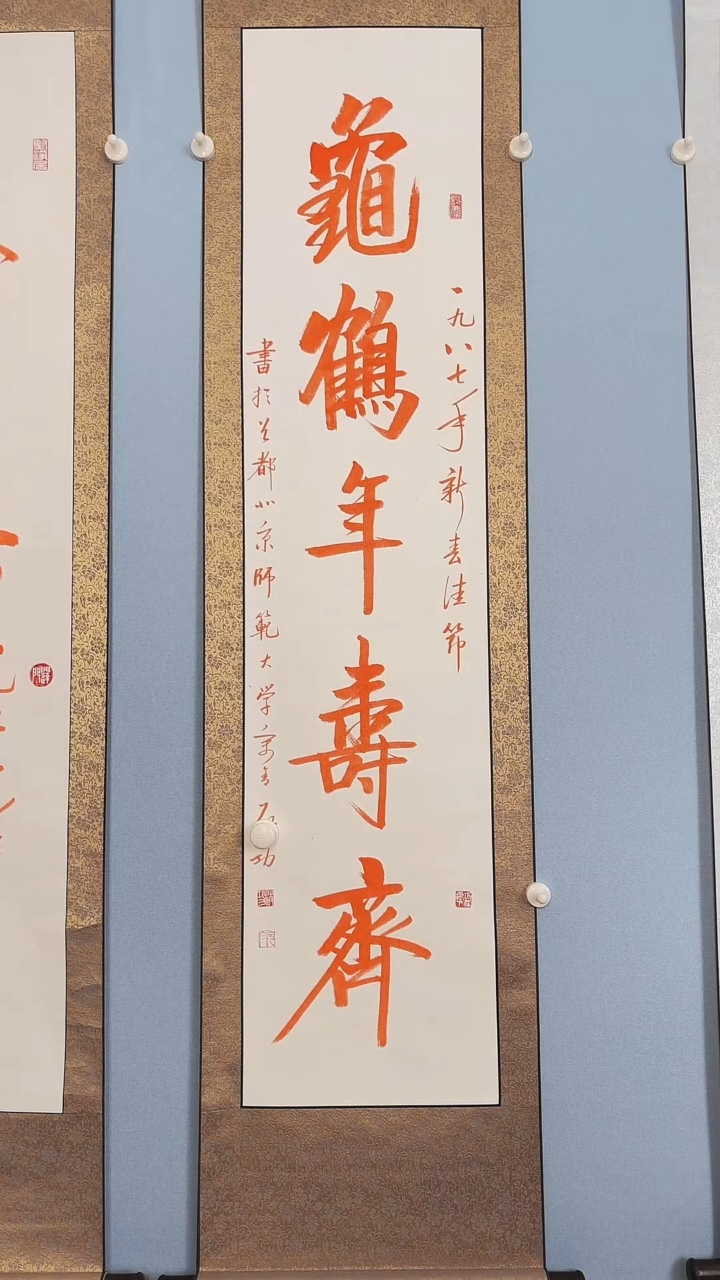 一九八七年新春佳节
龜鶴年壽齊
書於首都北京師範大学寓舍启功